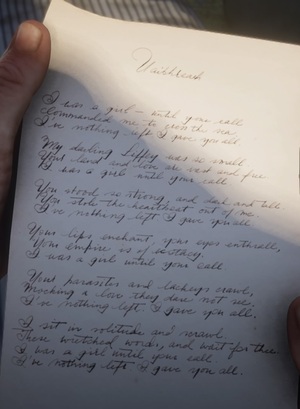 I was a girl – until your call
Commanded me to cross the sea
I've nothing left I gave you all.
My darling Liffey was so small
Your land and love are vast and free
I was a girl until your call
You stood so strong and dark and tall
You stole the heartbeat out of me.
I've nothing left I gave you all
Your lips enchant, your eyes enthrall,
Your empire is of
I was a girl until your call
Your parasites and lackeys crawl,
Mocking a love they dare not see,
I've nothing left. I gave you all.
I sit in solitude and scrawl
These wretched words, and wait for thee
I was a girl until your call
I've nothing left I gave you all.